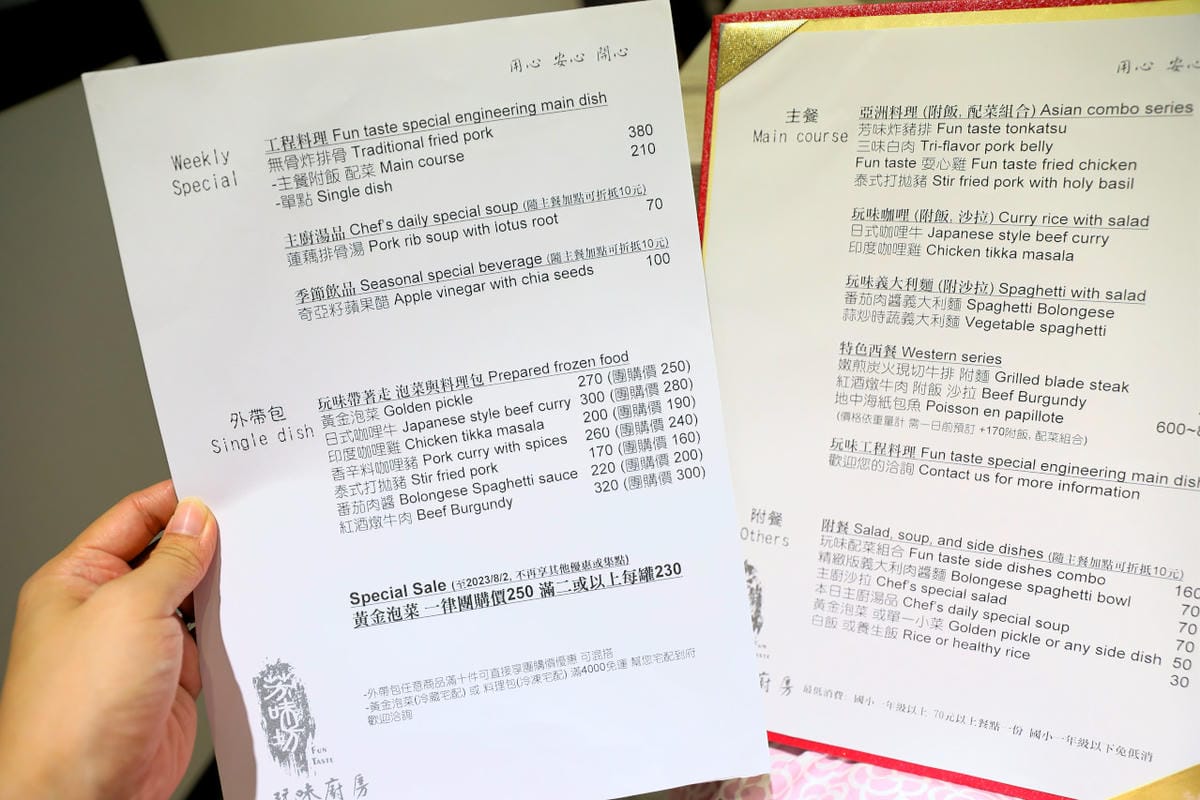 用心 安心 開心
Weekly Special
工程料理 Fun taste special engineering main dish
無骨炸排骨 Traditional fried pork
-主餐附飯 配菜 Main course 380
-單點 Single dish 210
主廚湯品 Chef's daily special soup (隨主餐加點可折抵10元)
蓮藕排骨湯 Pork rib soup with lotus root 70
季節飲品 Seasonal special beverage (隨主餐加點可折抵10元)
奇亞籽蘋果醋 Apple vinegar with chia seeds 100
外帶包
Single dish
玩味帶著走 泡菜與料理包 Prepared frozen food
黃金泡菜 Golden pickle 270 (團購價 250)
日式咖哩牛 Japanese style beef curry 300 (團購價 280)
印度咖哩雞 Chicken tikka masala 200 (團購價 190)
香辛料咖哩豬 Pork curry with spices 260 (團購價 240)
泰式打拋豬 Stir fried pork 170 (團購價 160)
番茄肉醬 Bolongese Spaghetti sauce 220 (團購價 200)
紅酒燉牛肉 Beef Burgundy 320 (團購價 300)
Special Sale (至2023/8/2, 不再享其他優惠或集點)
黃金泡菜 一律團購價250 滿二或以上每罐230
-外帶包任意商品滿十件可直接享團購價優惠 可混搭
-黃金泡菜(冷藏宅配) 或 料理包(冷凍宅配) 滿4000免運 幫您宅配到府
歡迎洽詢
芳味坊
FUN TASTE
玩味廚房
用心 安心
主餐
Main course
亞洲料理 (附飯, 配菜組合) Asian combo series
芳味炸豬排 Fun taste tonkatsu
三味白肉 Tri-flavor pork belly
Fun taste 耍心雞 Fun taste fried chicken
泰式打拋豬 Stir fried pork with holy basil
玩味咖哩 (附飯, 沙拉) Curry rice with salad
日式咖哩牛 Japanese style beef curry
印度咖哩雞 Chicken tikka masala
玩味義大利麵 (附沙拉) Spaghetti with salad
番茄肉醬義大利麵 Spaghetti Bolongese
蒜炒時蔬義大利麵 Vegetable spaghetti
特色西餐 Western series
嫩煎炭火現切牛排 附麵 Grilled blade steak
紅酒燉牛肉 附飯 沙拉 Beef Burgundy
地中海紙包魚 Poisson en papillote 600~
(價格依重量計 需一日前預訂 +170附飯, 配菜組合)
玩味工程料理 Fun taste special engineering main dish
歡迎您的洽詢 Contact us for more information
附餐
Others
附餐 Salad, soup, and side dishes (隨主餐加點可折抵10元)
玩味配菜組合 Fun taste side dishes combo 160
精緻版義大利肉醬麵 Bolongese spaghetti bowl 70
主廚沙拉 Chef's special salad 70
本日主廚湯品 Chef's daily special soup 70
黃金泡菜 或單一小菜 Golden pickle or any side dish 50
白飯 或養生飯 Rice or healthy rice 30
廚房
最低消費 國小一年級以上 70元以上餐點一份 國小一年級以下免低消